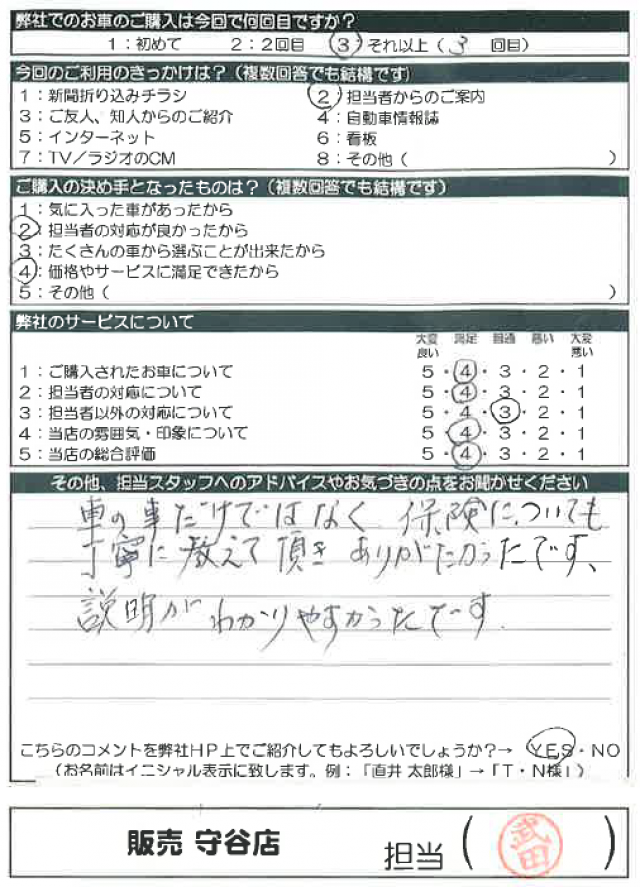 弊社でのお車のご購入は今回で何回目ですか？
1：初めて　2：2回目　3：それ以上（3　回目）
今回のご利用のきっかけは？（複数回答でも結構です）
1：新聞折り込みチラシ　2：担当者からのご案内
3：ご友人、知人からのご紹介　4：自動車情報誌
5：インターネット　6：看板
7：TV／ラジオのCM　8：その他（　）
ご購入の決め手となったものは？（複数回答でも結構です）
1：気に入った車があったから
2：担当者の対応が良かったから
3：たくさんの車から選ぶことが出来たから
4：価格やサービスに満足できたから
5：その他（　）
弊社のサービスについて
大変良い　満足　普通　悪い　大変悪い
1：ご購入されたお車について　5・4・3・2・1
2：担当者の対応について　5・4・3・2・1
3：担当者以外の対応について　5・4・3・2・1
4：当店の雰囲気・印象について　5・4・3・2・1
5：当店の総合評価　5・4・3・2・1
その他、担当スタッフへのアドバイスやお気づきの点をお聞かせください
車の事だけではなく 保険についても
丁寧に教えて頂きありがたかったです、
説明がわかりやすかったです.
こちらのコメントを弊社HP上でご紹介してもよろしいでしょうか？→　YES・NO
（お名前はイニシャル表示に致します。例：「直井 太郎様」→「T・N様」）
販売 守谷店　担当（武田）